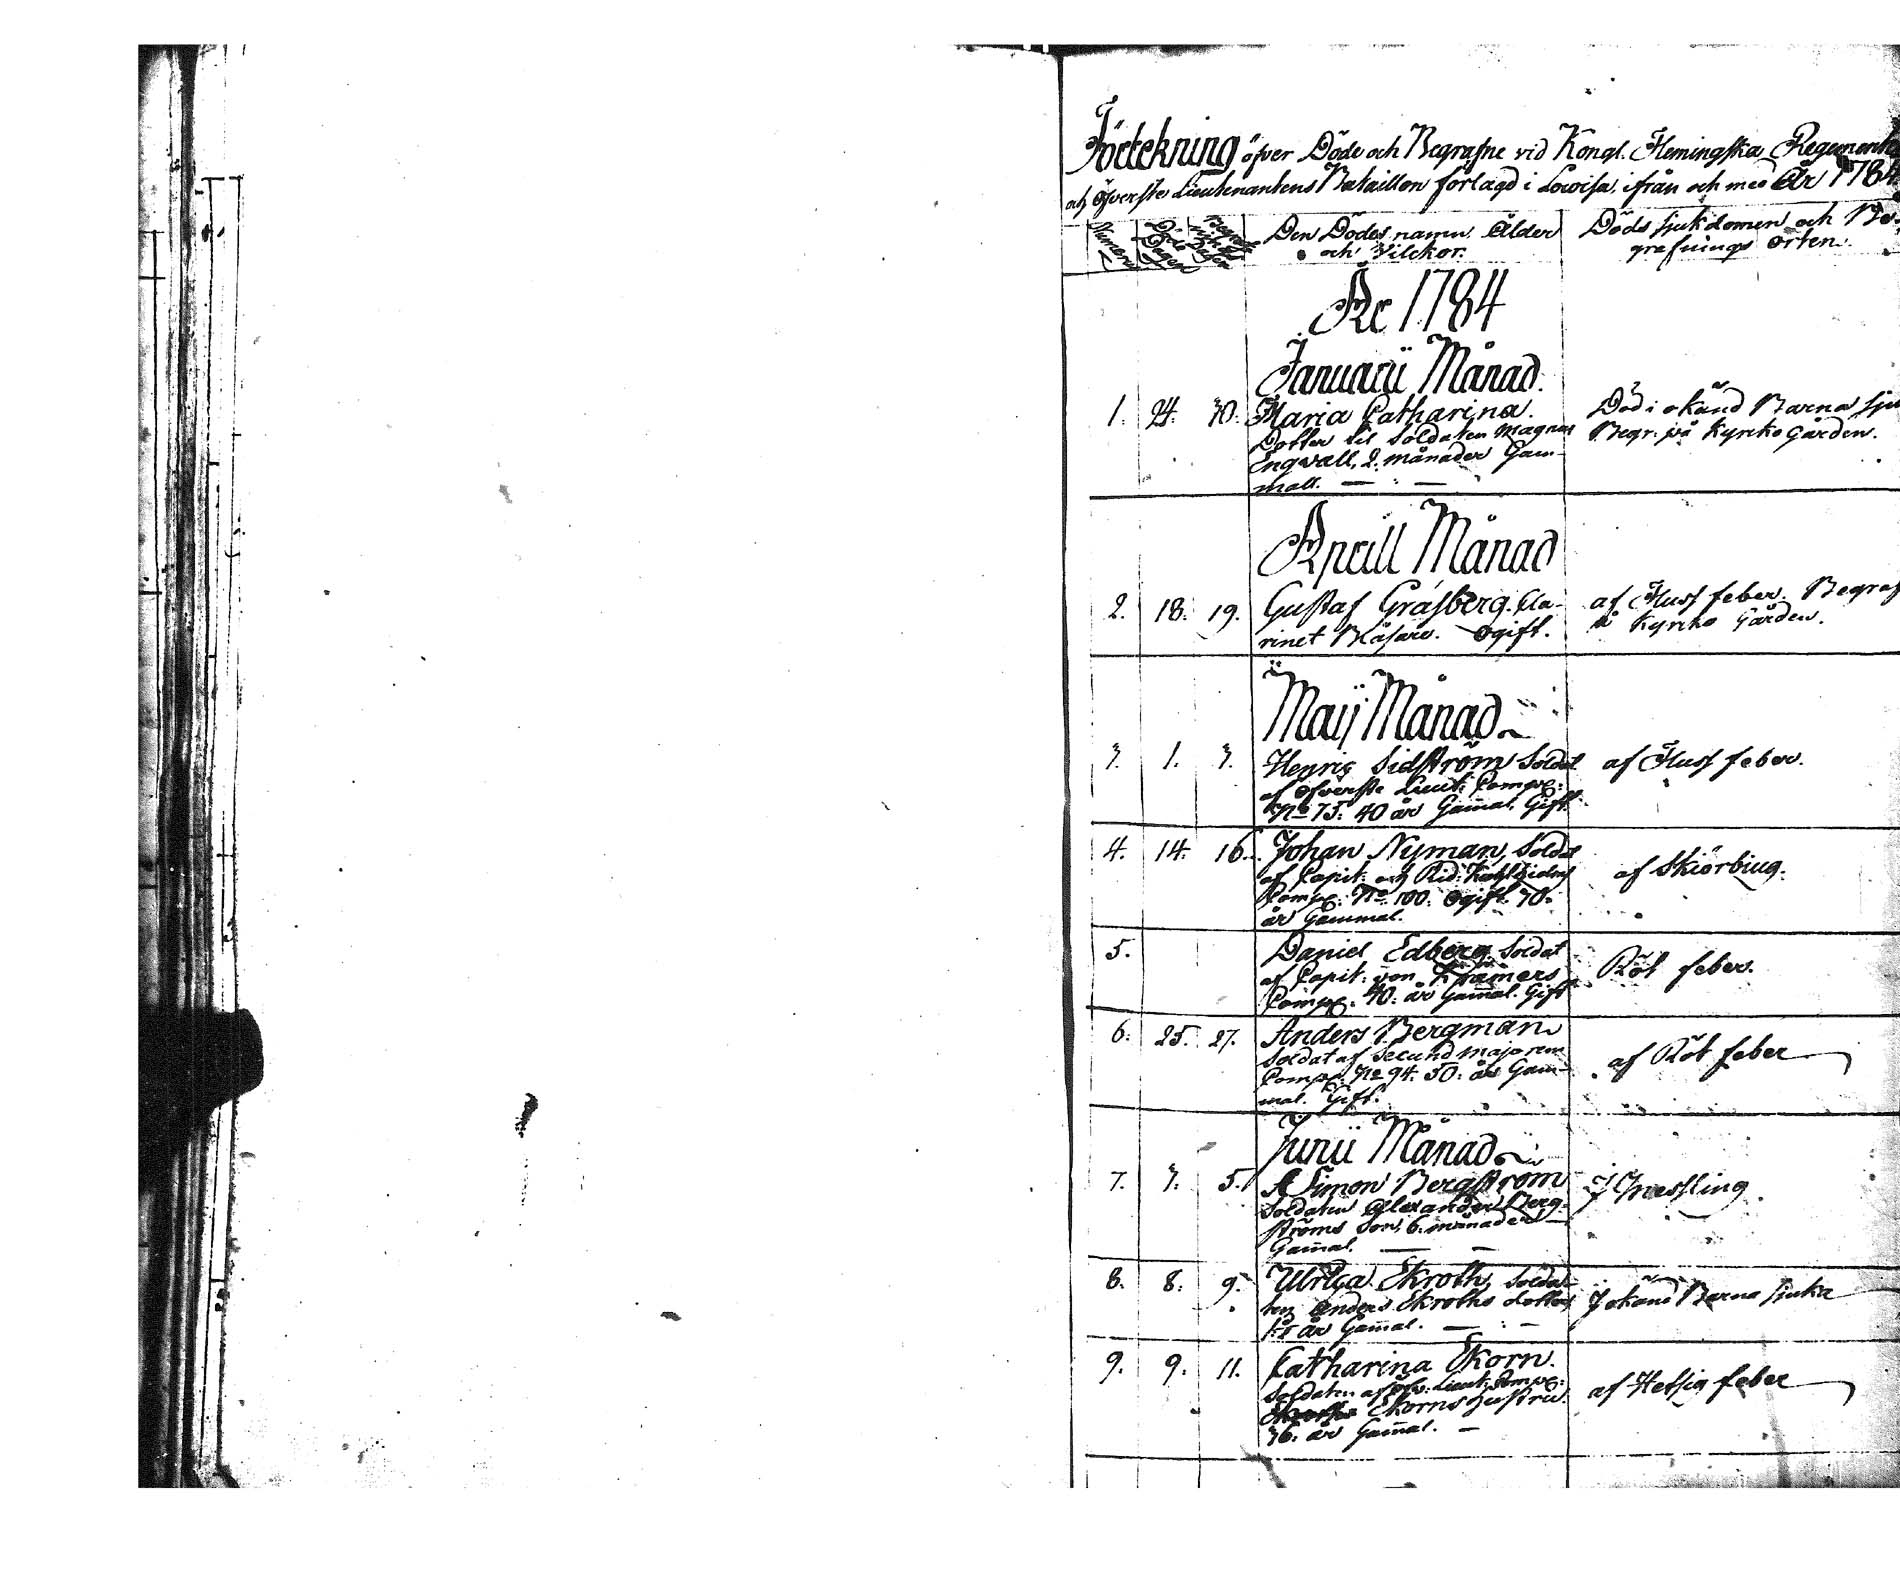 Förtekning öfver Döde och Begrafne vid Kongl. Flemingska Regemente
och Öfverste Lieutenantens Bataillon förlagd i Lowisa, ifrån och med År 1784
Numero Döds Dagen Begrafnings Dagen Den Dödes namn, Ålder Döds sjukdomen och Be-
och Vilckor. grafnings orten.
År 1784
Januarii Månad.
1. 24. 30. Maria Catharina. Död i okänd Barna sju
Dotter til Soldaten Magnus Begr. på Kyrko Gården.
Engwall, 2. månader Gam-
mall.
Aprill Månad
2. 18. 19. Gustaf Gråsberg. Cla- af Fluss feber. Begraf
rinet Bläsare. Ogift. på Kyrko Gården.
Maij Månad
3. 1. 3. Henric Sidström Soldat af Fluss feber.
af Öfverste Lieut: Comp:
No 75: 40 år Gamal. Gift.
4. 14. 16. Johan Nyman, Soldat af Skiörbiug.
af Capit: och Rid:
Comp: No 100. Ogift. 30.
år Gammal.
5. Daniel Edberg. Soldat Röt feber.
af Capit: von Kræmers
Comp: 40: år Gamal. Gift
6. 25. 27. Anders Bergman af Röt feber
Soldat af Secund majorens
Comp: No 94. 50: år Gam-
mal. Gift.
Junii Månad
7. 3. 5. Simon Bergström I Messling
Soldaten Alexander Berg-
ströms Son, 6. månader
Gamal.
8. 8. 9. Ulrica Ekroth, Solda- I okänd Barna sjuka
ten Anders Ekroths dotter
1 år Gamal.
9. 9. 11. Catharina Ekorn. af Hetsig feber
Soldaten af Öfv: Lieut: Comp:
Ekorns hustru.
36. år Gamal.